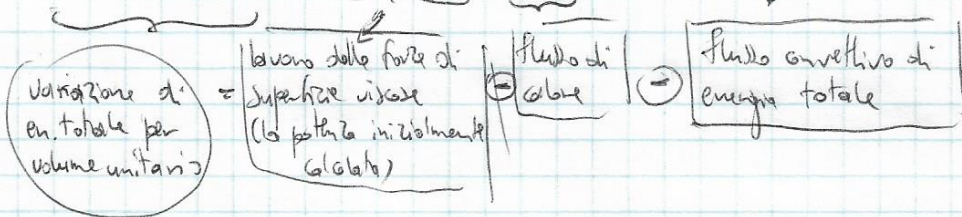 variazione di
en. totale per
volume unitario
=
lavoro delle forze di
superficie viscose
(la potenza inizialmente
calcolata)
-
flusso di
calore
-
flusso convettivo di
energia totale